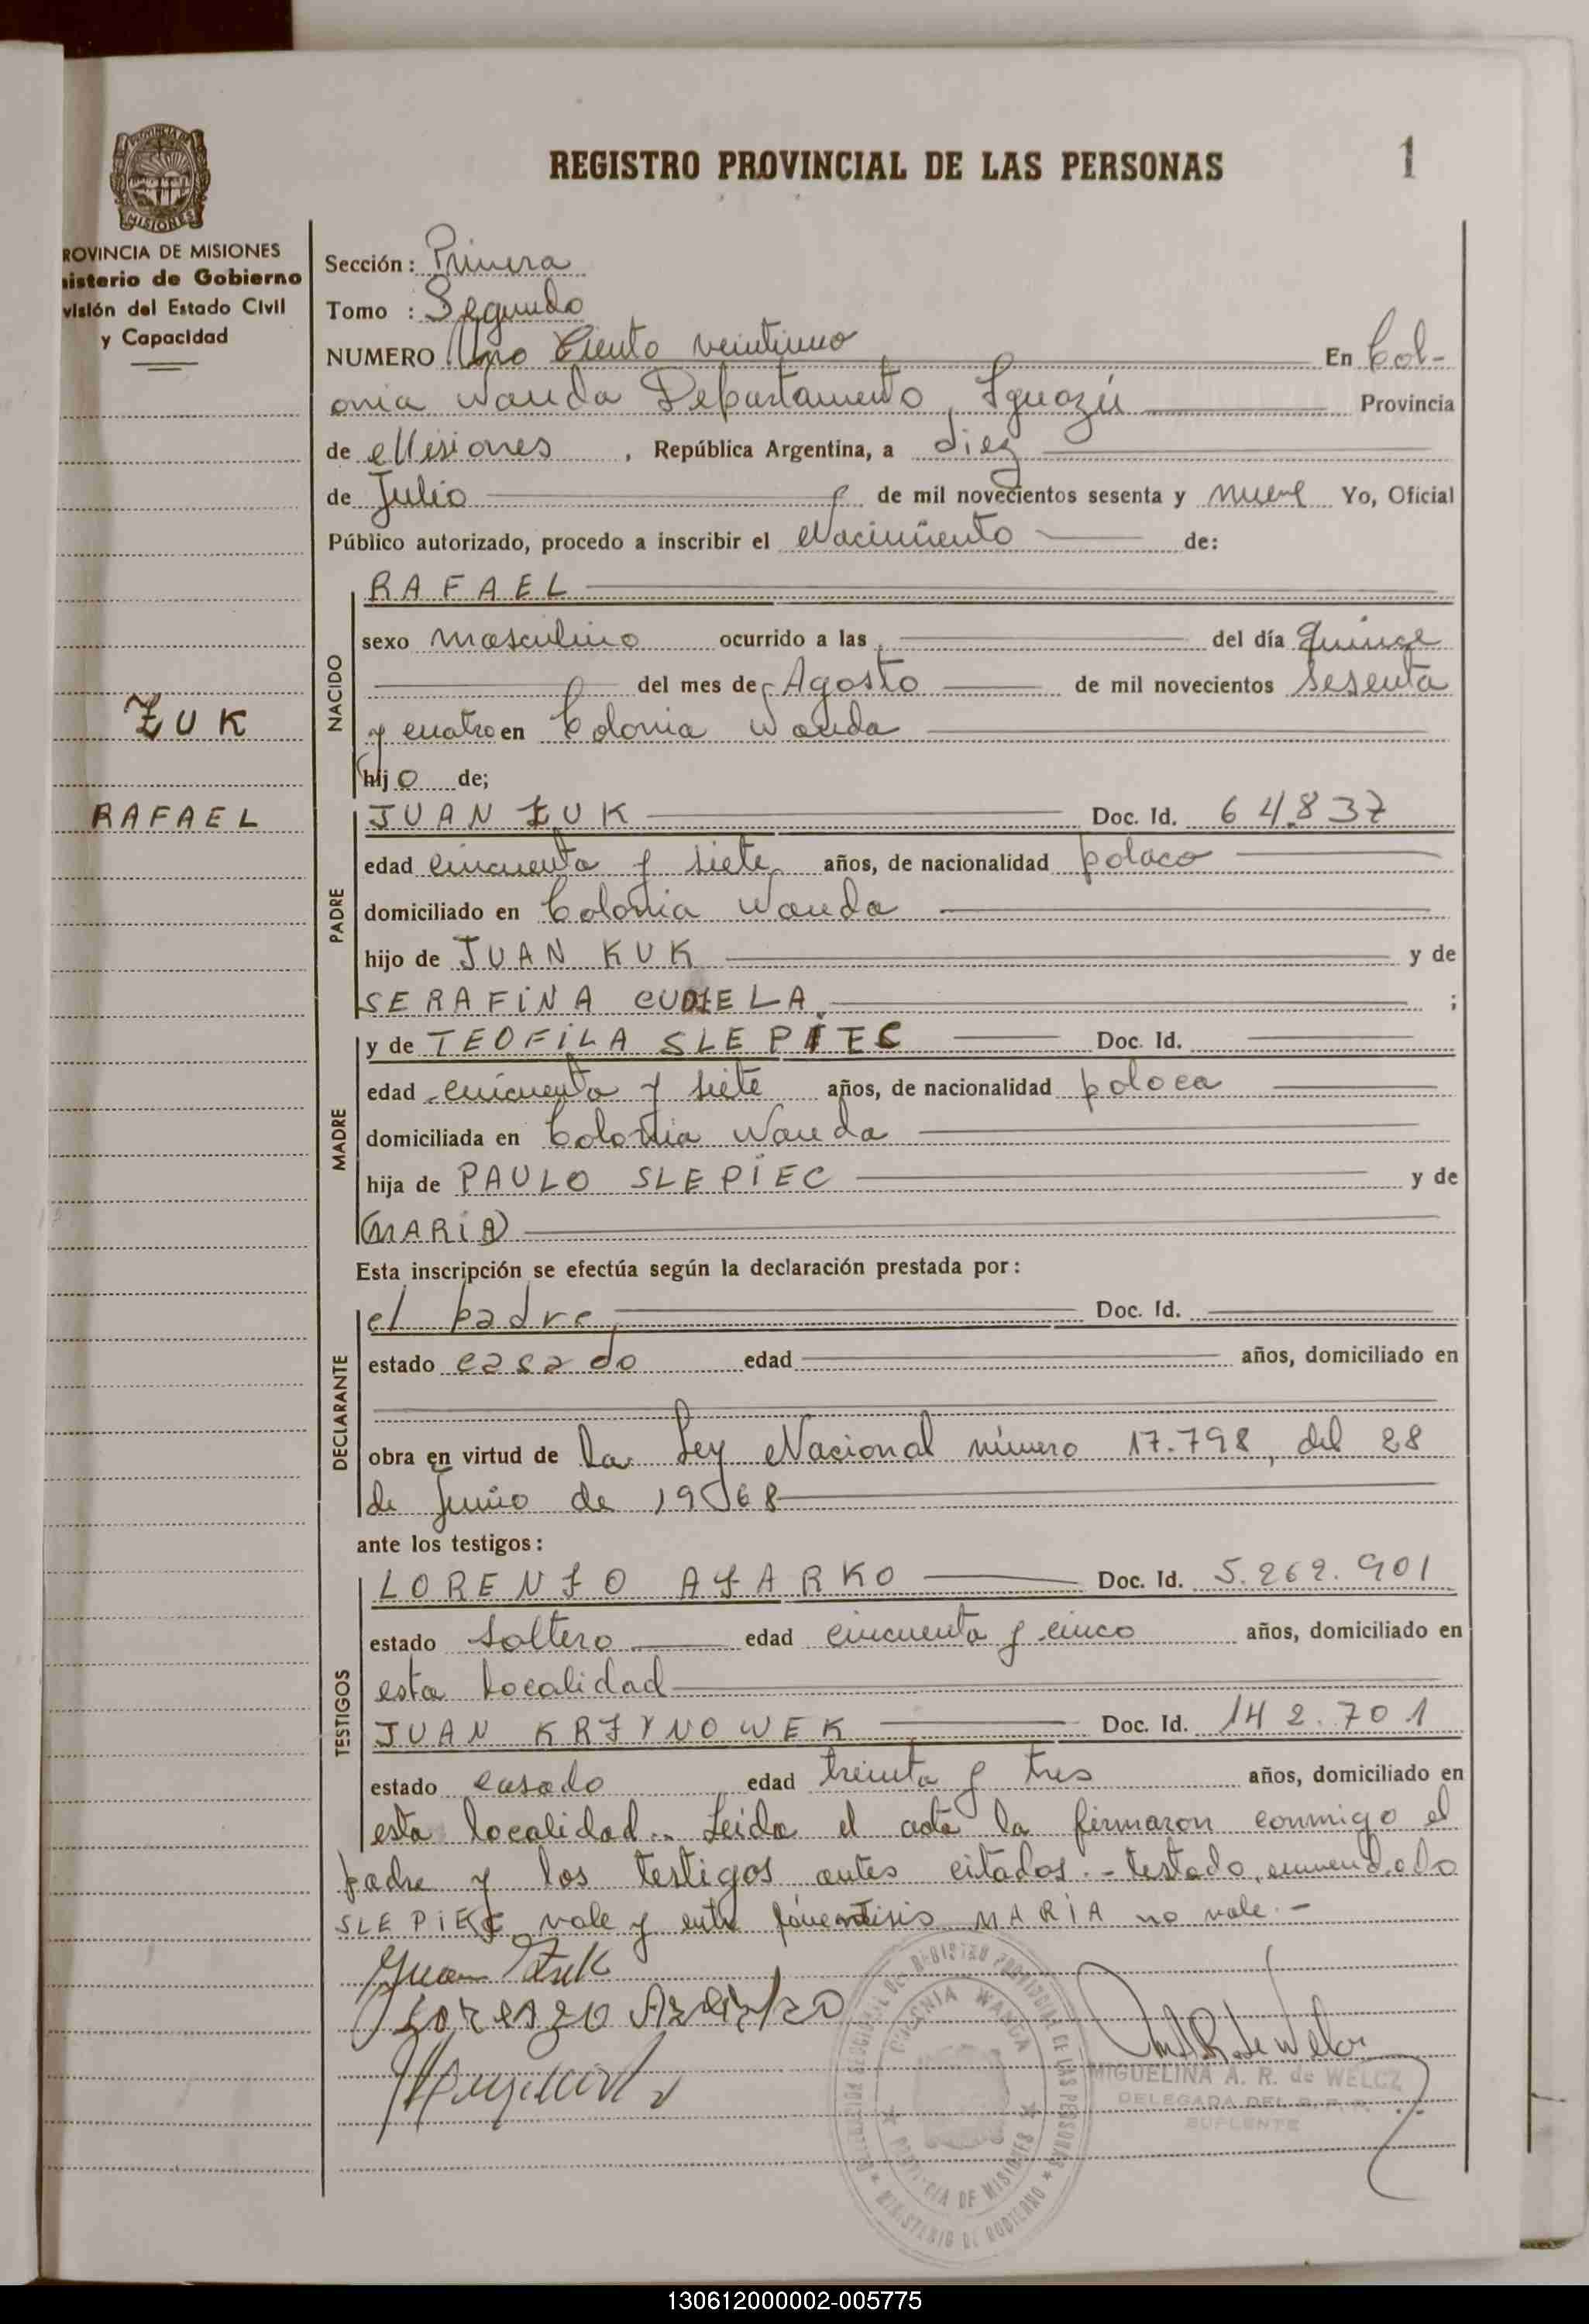 REGISTRO PROVINCIAL DE LAS PERSONAS
1
PROVINCIA DE
MISIONES
ROVINCIA DE MISIONES
nisterio de Gobierno
visión del Estado Civil
y Capacidad
ZUK
RAFAEL
Sección: Primera
Tomo : Segundo
NUMERO Uno Ciento veintiuno En Col-
onia Wanda Departamento Iguazú Provincia
de Misiones, República Argentina, a diez
de Julio de mil novecientos sesenta y nueve Yo, Oficial
Público autorizado, procedo a inscribir el Nacimiento de:
NACIDO
RAFAEL
sexo masculino ocurrido a las del día quince
del mes de Agosto de mil novecientos sesenta
y cuatro en Colonia Wanda
hijo de;
PADRE
JUAN ZUK Doc. Id. 64.837
edad cincuenta y siete años, de nacionalidad polaco
domiciliado en Colonia Wanda
hijo de JUAN KUK y de
SERAFINA ;
MADRE
y de TEOFILA SLEPIEC Doc. Id.
edad cincuenta y siete años, de nacionalidad polaca
domiciliada en Colonia Wanda
hija de PAULO SLEPIEC y de
(MARIA)
Esta inscripción se efectúa según la declaración prestada por:
DECLARANTE
el padre Doc. Id.
estado casado edad años, domiciliado en
obra en virtud de la Ley Nacional número 17.798, del 28
de Junio de 1968
ante los testigos:
TESTIGOS
LORENZO AZARKO Doc. Id. 5.262.901
estado soltero edad cincuenta y cinco años, domiciliado en
esta localidad
JUAN KRZYNOWEK Doc. Id. 142.701
estado casado edad treinta y tres años, domiciliado en
esta localidad.. Leida el acta la firmaron conmigo el
padre y los testigos antes citados.- testado, enmendado
SLEPIEC vale y entre paréntisis MARIA no vale.-
Juan Zuk
COLONIA WANDA
PROVINCIA DE MISIONES
MINISTERIO DE GOBIERNO
MIGUELINA A. R. de WELCZ
DELEGADA DEL R. P. P.
SUPLENTE
130612000002-005775